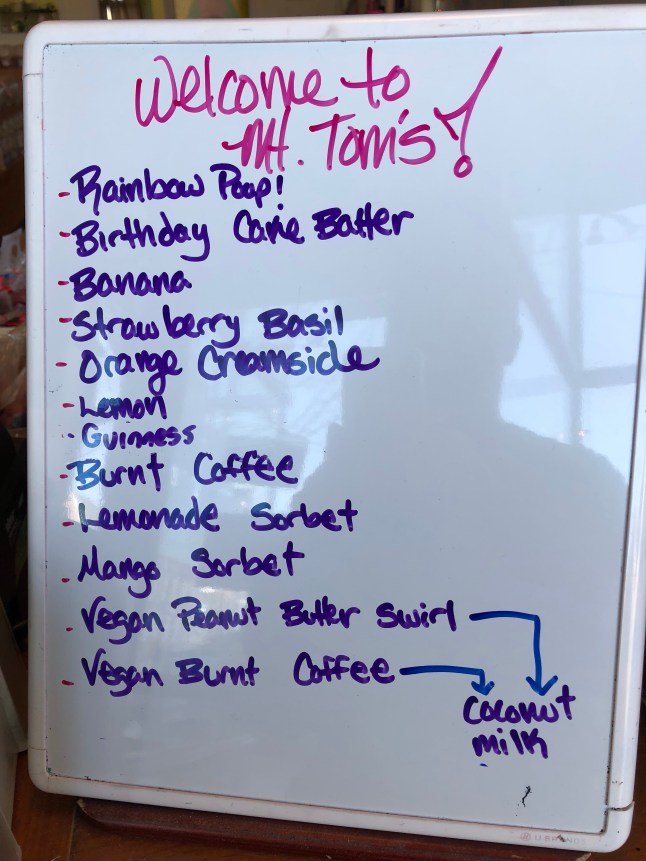 Welcome to
Mt. Tom's!
- Rainbow Poop!
- Birthday Cake Batter
- Banana
- Strawberry Basil
- Orange Creamsicle
- Lemon
- Guinness
- Burnt Coffee
- Lemonade Sorbet
- Mango Sorbet
- Vegan Peanut Butter Swirl
- Vegan Burnt Coffee
Coconut
milk
U BRANDS